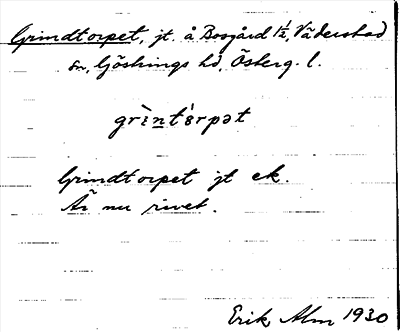 Grindtorpet, jt. å Bosgård 1/2, Väderstad
sn, Göstrings hd, Österg. l.
grìnt`ɵrpət
Grindtorpet jt ek.
Är nu rivet.
Erik Alm 1930